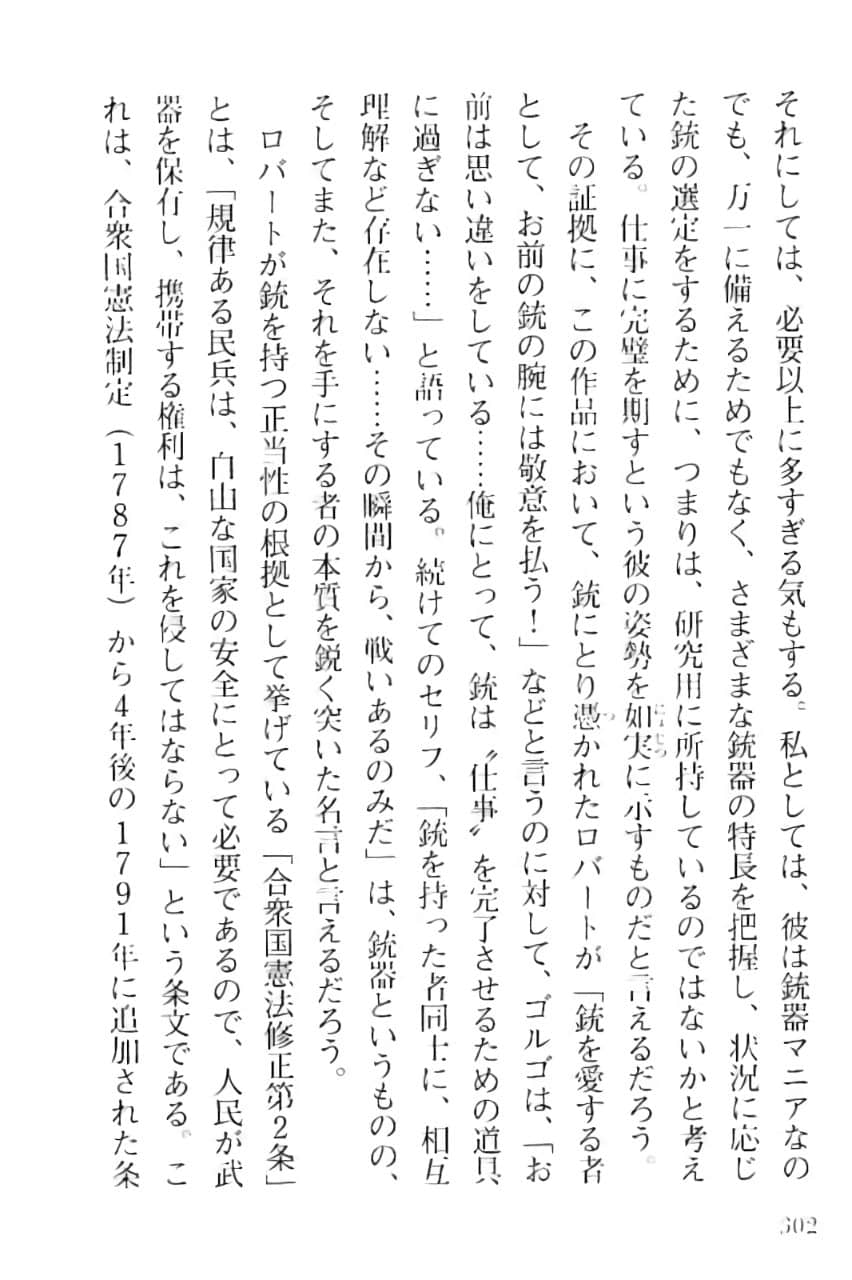 それにしては、必要以上に多すぎる気もする。私としては、彼は銃器マニアなの
でも、万一に備えるためでもなく、さまざまな銃器の特長を把握し、状況に応じ
た銃の選定をするために、つまりは、研究用に所持しているのではないかと考え
ている。仕事に完璧を期すという彼の姿勢を如実に示すものだと言えるだろう。
その証拠に、この作品において、銃にとり憑かれたロバートが「銃を愛する者
として、お前の銃の腕には敬意を払う!」などと言うのに対して、ゴルゴは、「お
前は思い違いをしている……俺にとって、銃は〝仕事〟を完了させるための道具
に過ぎない……」と語っている。続けてのセリフ、「銃を持った者同士に、相互
理解など存在しない……その瞬間から、戦いあるのみだ」は、銃器というものの、
そしてまた、それを手にする者の本質を鋭く突いた名言と言えるだろう。
ロバートが銃を持つ正当性の根拠として挙げている「合衆国憲法修正第2条」
とは、「規律ある民兵は、自由な国家の安全にとって必要であるので、人民が武
器を保有し、携帯する権利は、これを侵してはならない」という条文である。こ
れは、合衆国憲法制定(1787年)から4年後の1791年に追加された条
302